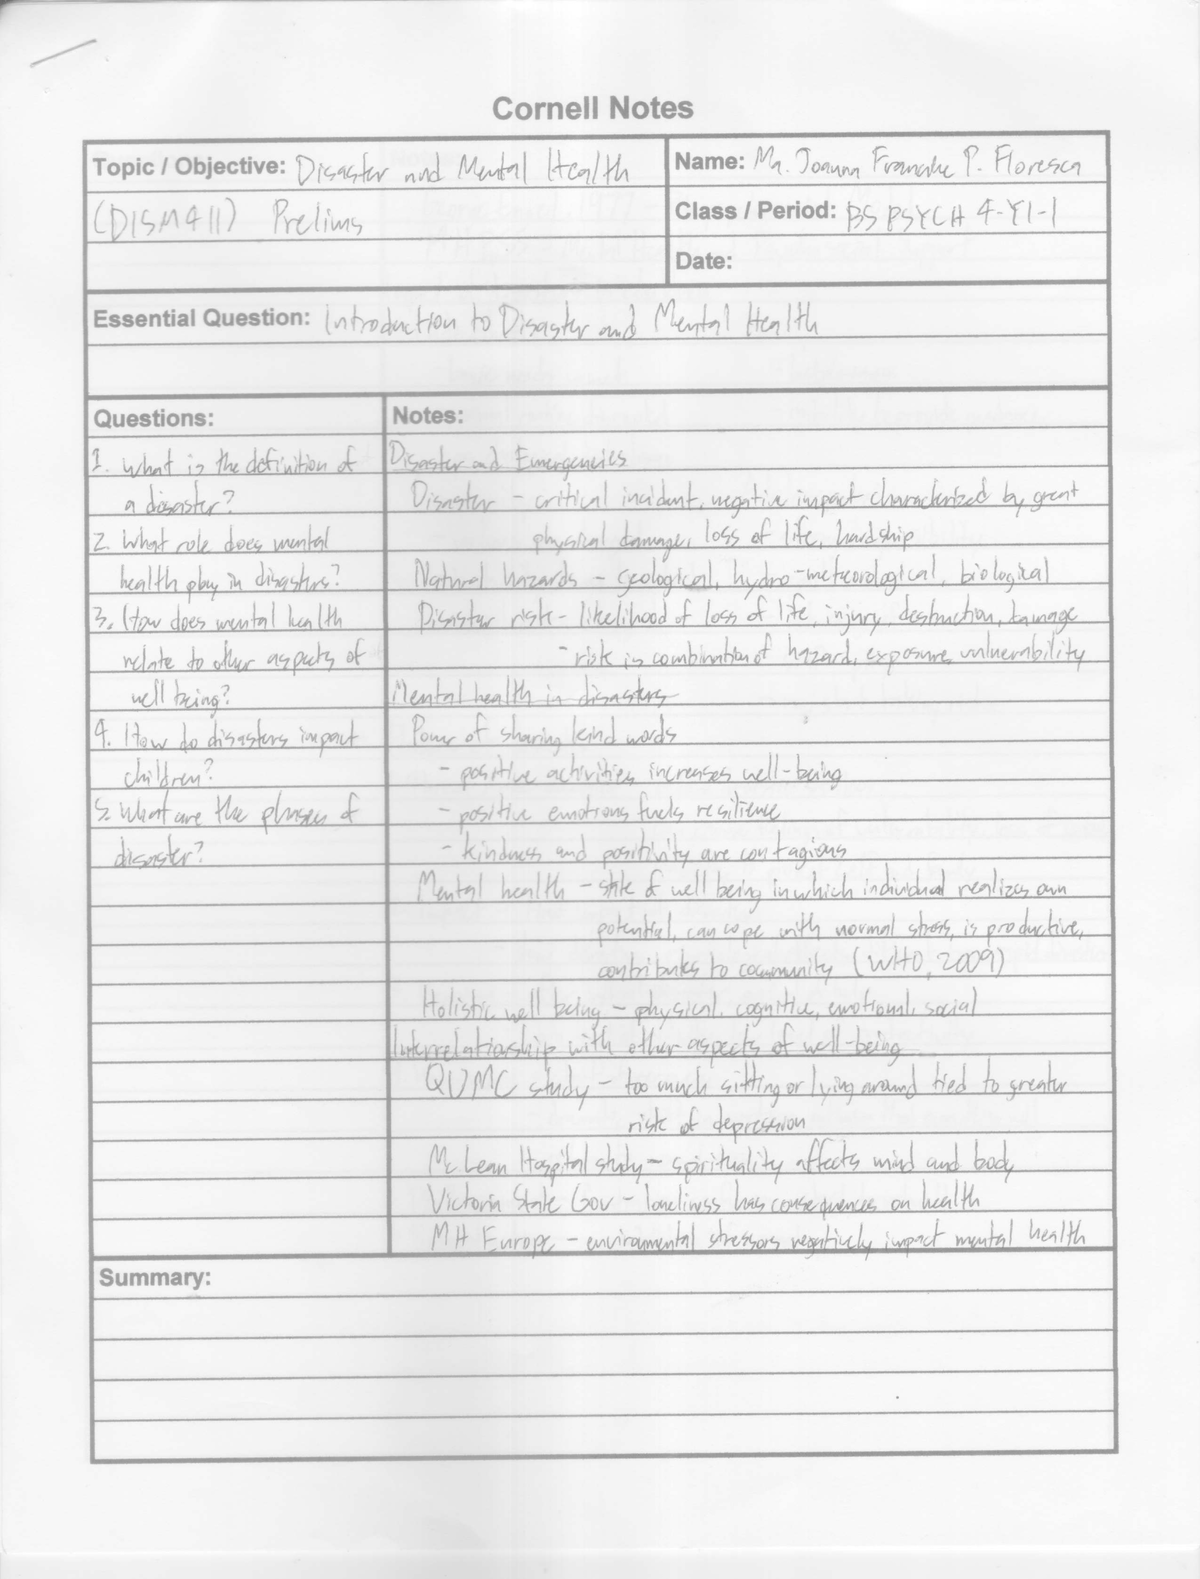 Cornell Notes
Topic / Objective: Disaster and Mental Health
(DISM411) Prelims
Name: Ma. Joanna Francine P. Floresca
Class / Period: BS PSYCH 4-Y1-1
Date:
Essential Question: Introduction to Disaster and Mental Health
Questions:
1. What is the definition of
a disaster?
2. What role does mental
health play in disasters?
3. How does mental health
relate to other aspects of
well being?
4. How do disasters impact
children?
5. What are the phases of
disaster?
Notes:
Disaster and Emergencies
Disaster - critical incident, negative impact characterized by great
physical damage, loss of life, hardship
Natural hazards - geological, hydro-meteorological, biological
Disaster risk - likelihood of loss of life, injury, destruction, damage
- risk is combination of hazard, exposure, vulnerability
Mental health in disasters
Power of sharing kind words
- positive activities increases well-being
- positive emotions fuels resilience
- kindness and positivity are contagious
Mental health - state of well being in which individual realizes own
potential, can cope with normal stress, is productive,
contributes to community (WHO, 2009)
Holistic well being - physical, cognitive, emotional, social
Interrelationship with other aspects of well-being
QUMC study - too much sitting or lying around tied to greater
risk of depression
McLean Hospital study - spirituality affects mind and body
Victoria State Gov - loneliness has consequences on health
MH Europe - environmental stressors negatively impact mental health
Summary: